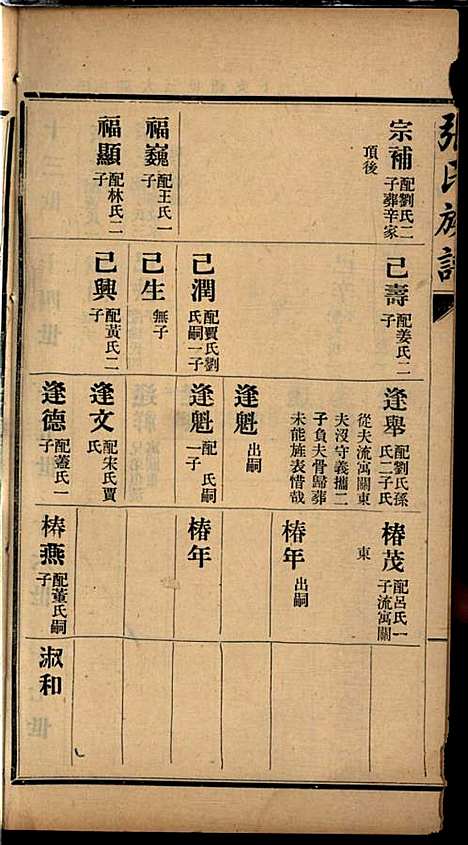 張氏族譜
宗補 配劉氏二
子葬辛家
頂後
福巍 配王氏一
子
福顯 配林氏二
子
己壽 配姜氏二
子
己潤 配賈氏劉
氏嗣一子
己生 無子
己興 配黃氏二
子
逢舉 配劉氏孫
氏二子氏
從夫流寓關東
夫沒守義攜二
子負夫骨歸葬
未能旌表惜哉
逢魁 出嗣
逢魁 配 氏嗣
一子
逢文 配宋氏賈
氏
逢德 配蓋氏一
子
椿茂 配呂氏一
子流寓關
東
椿年 出嗣
椿年
椿燕 配董氏嗣
子
淑和